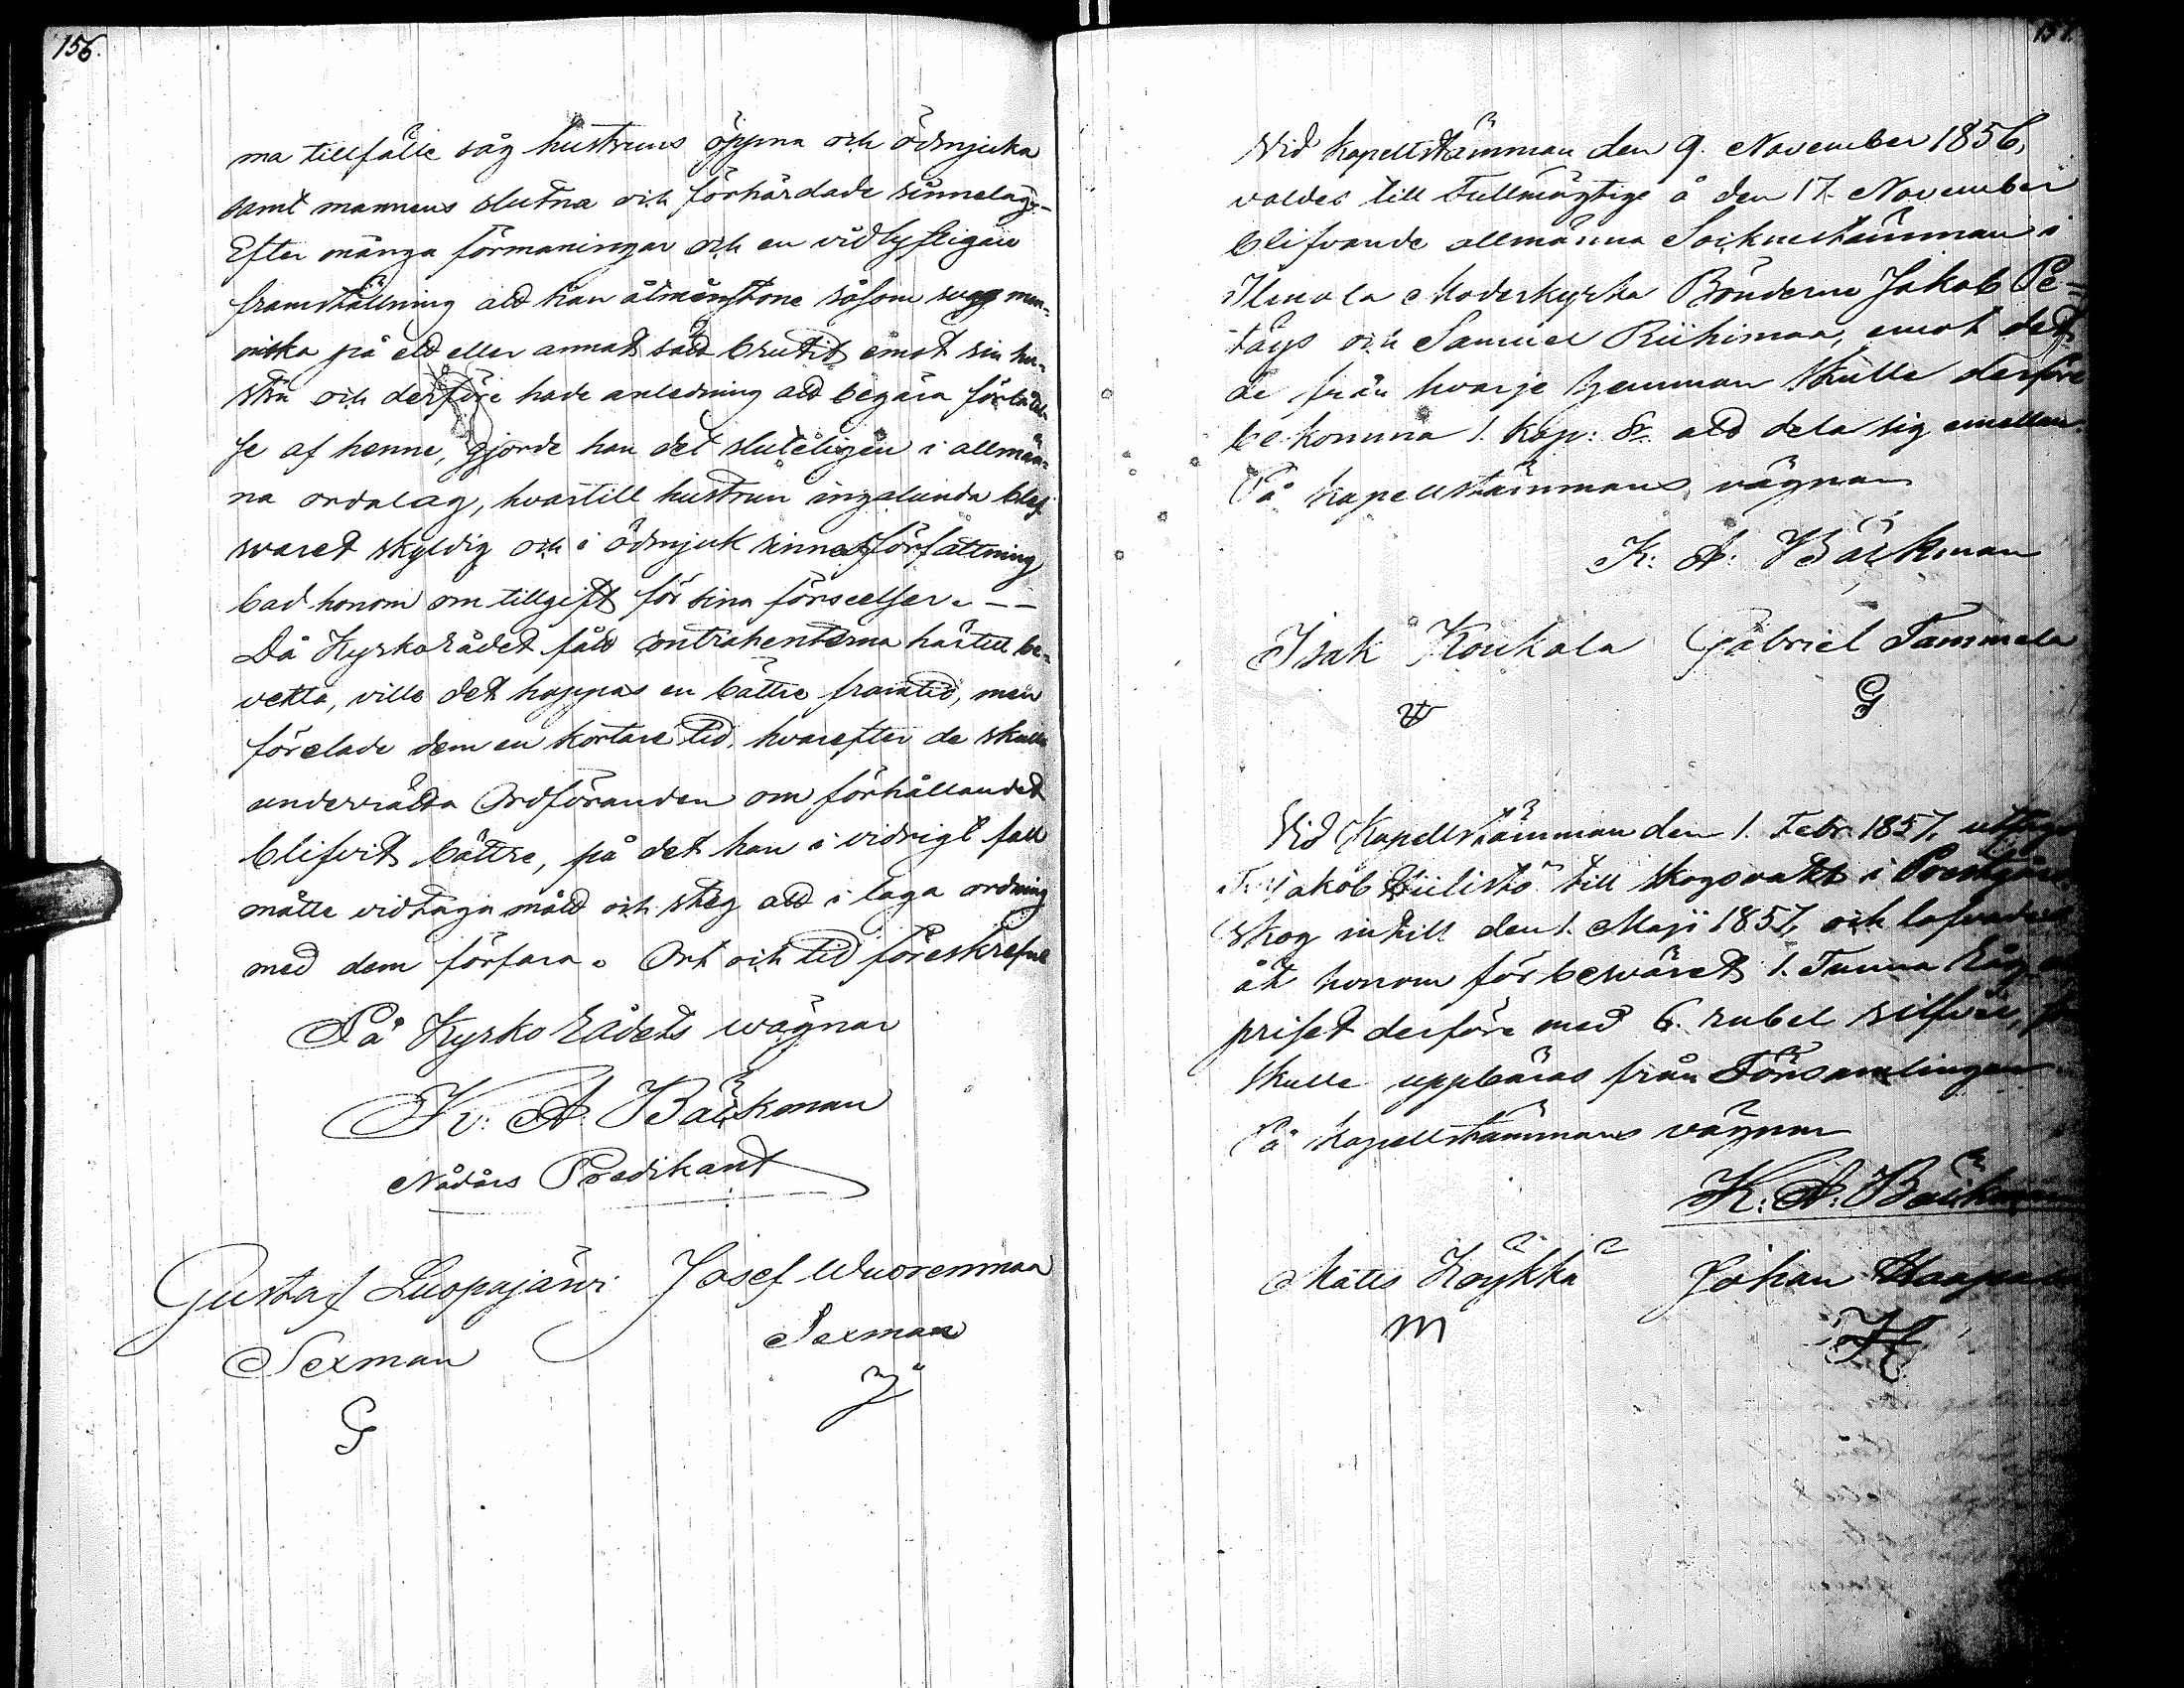 156.
ma tillfälle såg hustruns öppna och ödmjuka
samt mannens slutna och förhärdade sinnelag.-
Efter många förmaningar och en vidlyftigare
framställning att han åtminstone såsom svag men-
niska på ett eller annat sätt brutit emot sin hu-
stru och derföre hade anledning att begära förlåtel-
se af henne, gjorde han det sluteligen i allmän-
na ordalag, hvartill hustrun ingalunda blef
svaret skyldig och i ödmjuk sinnesförfattning
bad honom om tillgift för sina förseelser. - -
Då Kyrkorådet fått contrahenterna härtill be-
vekta, ville det hoppas en bättre framtid, men
förelade dem en kortare tid, hvarefter de skulle
underrätta Ordföranden om förhållandet
blifvit bättre, på det han i vidrigt fall
måtte vidtaga mått och steg att i laga ordning
med dem förfara. Ort och tid föreskrefne
På Kyrko Rådets wägnar
K: A. Bäckman
Nådårs Predikant
Gustaf Luopajärvi Josef Wuorenmaa
Sexman Sexman
G J
157.
Vid Kapellstämman den 9. November 1856,
valdes till Fullmägtige å den 17. November
blifvande allmänna Sockenstämman i
Ilmola Moderkyrka Bönderne Jakob Pe-
täys och Samuel Riihimaa, emot det
de från hvarje hemman skulle derföre
bekomma 1. kop: Sr. att dela sig emellan.
På kapellstämmans vägnar
K: A: Bäckman
Isak Koukala Gabriel Tammela
G
Vid Kapellstämman den 1. Febr. 1857, uttogs
Jakob till skogsvakt i
skog intill den 1. Maji 1857, och lofvades
åt honom för besväret 1. Tunna Råg
priset derföre med 6. rubel silfver,
skulle uppbäras från Församlingen
På kapellstämmans vägnar
K: A. Bäckman
Matts Köykkä Johan
m H